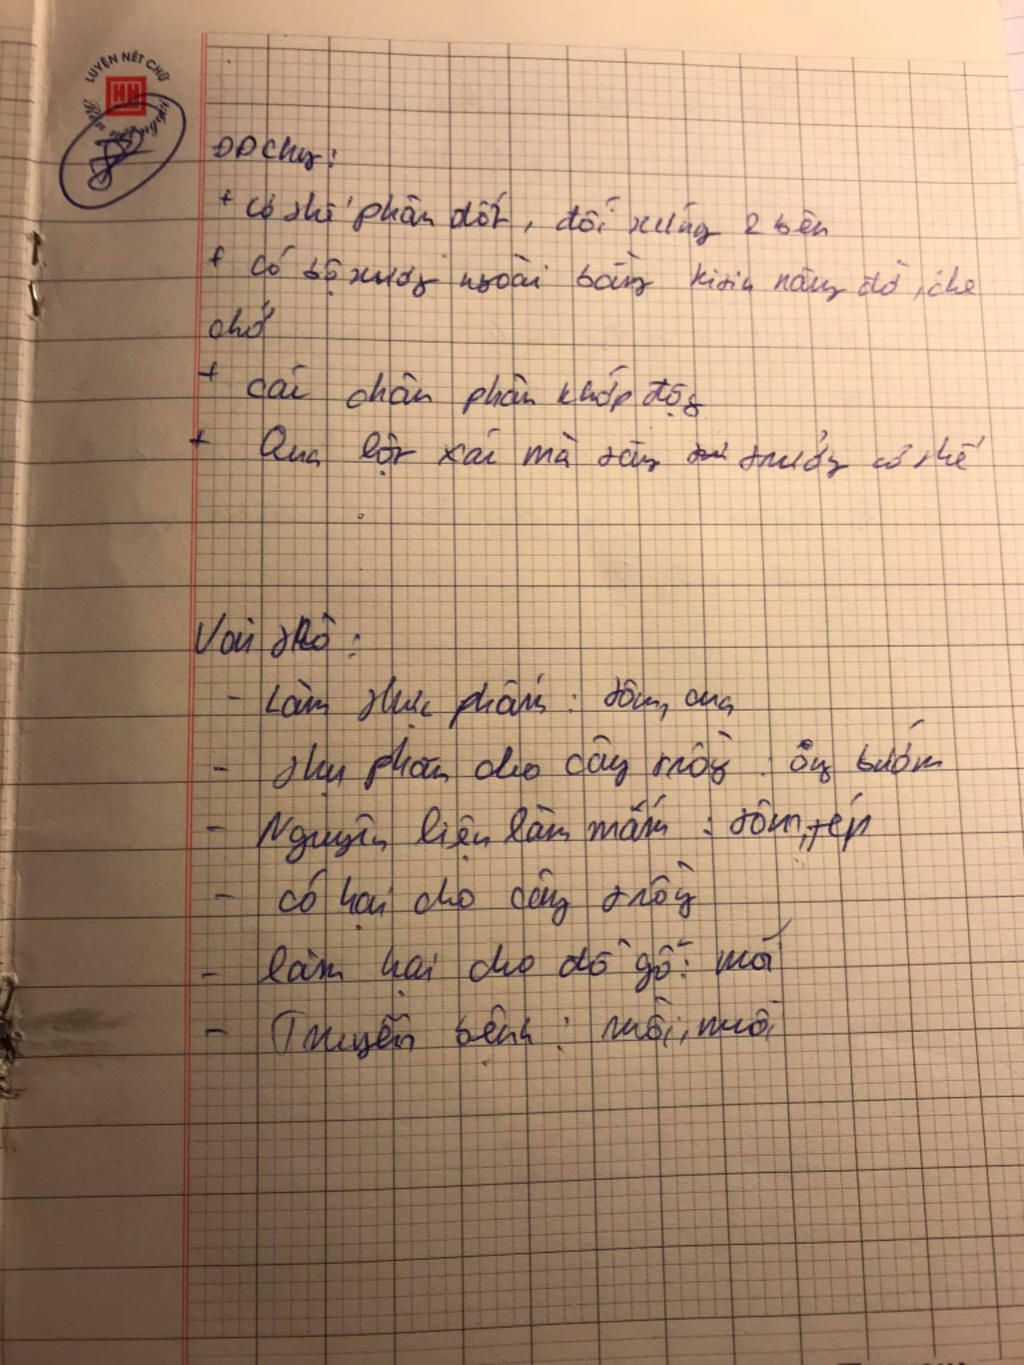 LUYỆN NẾT CHỮ
HH
Rèn nết người
ĐĐ chug:
+ có thể phân đốt, đối xứng 2 bên
+ có bộ xương ngoài bằng kitin nâng đỡ, che
chở
+ các chân phân khớp động
+ Qua lột xác mà tăng trưởng cơ thể
Vai trò:
- Làm thực phẩm: tôm, cua
- thụ phấn cho cây trồng: ong bướm
- Nguyên liệu làm mắm: tôm, tép
- có hại cho cây trồng
- làm hại cho đồ gỗ: mối
- Truyền bệnh: ruồi, muỗi